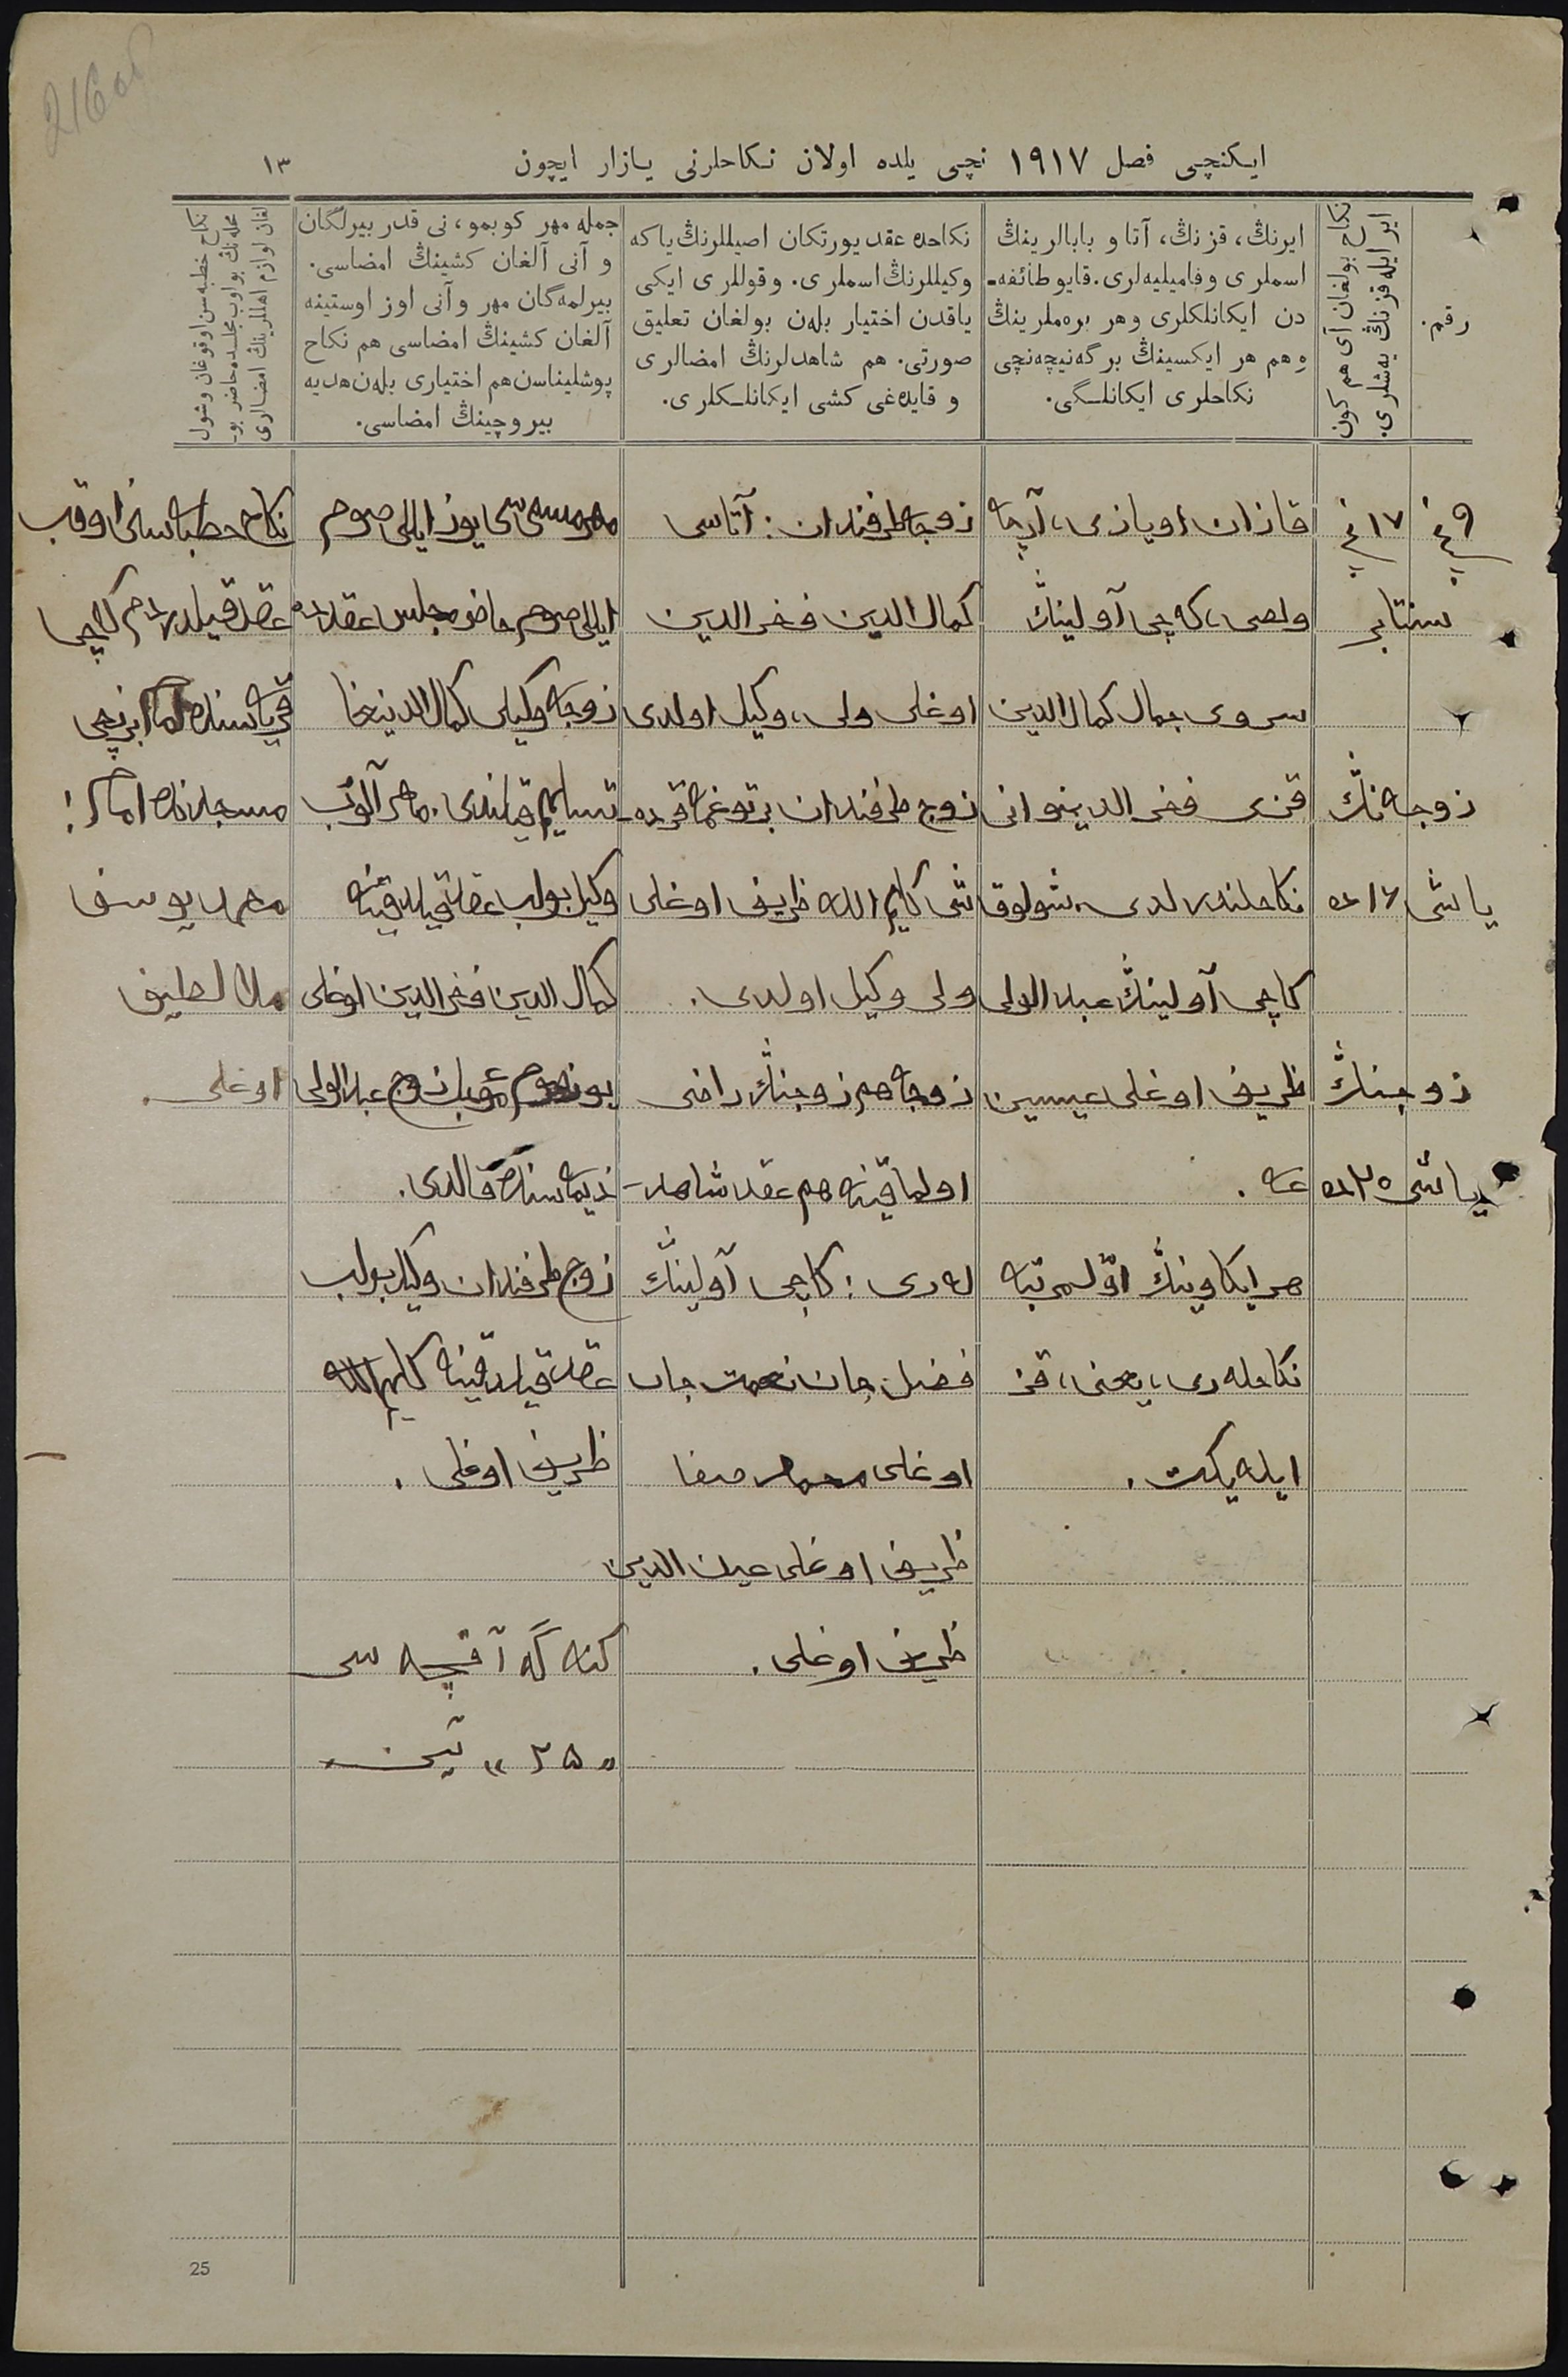 216 об
ایكنچی فصل ١٩١٧ نچی یلده اولان نكاحلرنی یازار ایچون
١٣
رقم.
نكاح بولغان آی هم كون
ایر ایله قزنڭ یەشلری.
ایرنڭ، قزنڭ، آتا و بابالرینڭ
اسملری وفامیلیەلری. قایو طائفه‌ـ
دن ایكانلكلری وهر برەملرینڭ
وهم هر ایكسینڭ برگه نیچەنچی
نكاحلری ایكانلـگی.
نكاحده عقد یورتكان اصیللرنڭ یاكه
وكیللرنڭ اسملری. وقوللری ایكی
یاقدن اختیار بلەن بولغان تعلیق
صورتی. هم شاهدلرنڭ امضالری
و قایدەغی كشی ایكانلـكلری.
جمله مهر كوبمو، نی قدر بیرلگان
و آنی آلغان كشینڭ امضاسی.
بیرلمەگان مهر وآنی اوز اوستینه
آلغان كشینڭ امضاسی هم نكاح
پوشلیناسن هم اختیاری بلەن هدیه
بیروچینڭ امضاسی.
نكاح خطبه‌سن اوقوغان وشول
محله‌نڭ بولوب مجلسده حاضر بو-
لغان لوازم اهللرینڭ امضالری
٩ نچی
١٧ نچی
سنتابر
زوجه‌نڭ
یاشی ١٦ ده
زوجنڭ
یاشی ٢٥ ده
قازان اویازی،
ولصی، كه‌چی آولینڭ
سروی جمال كمال الدین
قزی فخر الدینوانی
نكاحلندرلدی، شولوق
كاچی آولینڭ عبد الولی
ظریف اوغلی عیسین
غه.
هر ایكاوینڭ اوّلمرتبه
نكاحلەری، یعنی، قز
ایله یكت.
زوجه طرفندان: آتاسی
كمال الدین فخر الدین
اوغلی ولی، وكیل اولدی
زوج طرفندان برتوغمه قرده‌ـ
شی كلیم الله ظریف اوغلی
ولی وكیل اولدی.
زوجه هم زوجنڭ راضی
اولماقینه هم عقد شاهد‌ـ
لەری: كاچی آولینڭ
فضل جان نعمت جان
اوغلی محمد صفا
ظریف اوغلی عین الدین
ظریف اوغلی.
مهر مسمی‌سی یوز ایللی صوم
ایللی صوم حاضر مجلس عقدده
زوجه وكیلی كمال الدینغا
تسلیم قیلندی. مهر آلوب
وكیل بولب عقد قیلدقینه
كمال الدین فخر الدین اوغلی
یوز صوم مؤجل زوج عبد الولی
ذیمه‌سنده قالدی.
زوج طرفندان وكیل بولب
عقد قیلدقینه كلیم الله
ظریف اوغلی.
كنه‌گه آقچه سی
«٢٥» تین
نكاح خطبه‌سنی اوقب
عقد قیلدردم كاچی
قریه‌سنده برنچی
مسجدنده امام:
محمد یوسف
ملا لطیف
اوغلی.
25